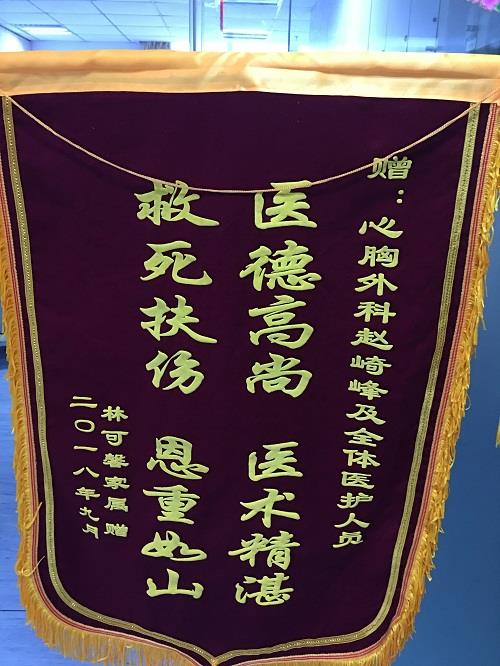 赠：心胸外科赵崎峰及全体医护人员
医德高尚 医术精湛
救死扶伤 恩重如山
林可馨家属赠
二〇一八年九月